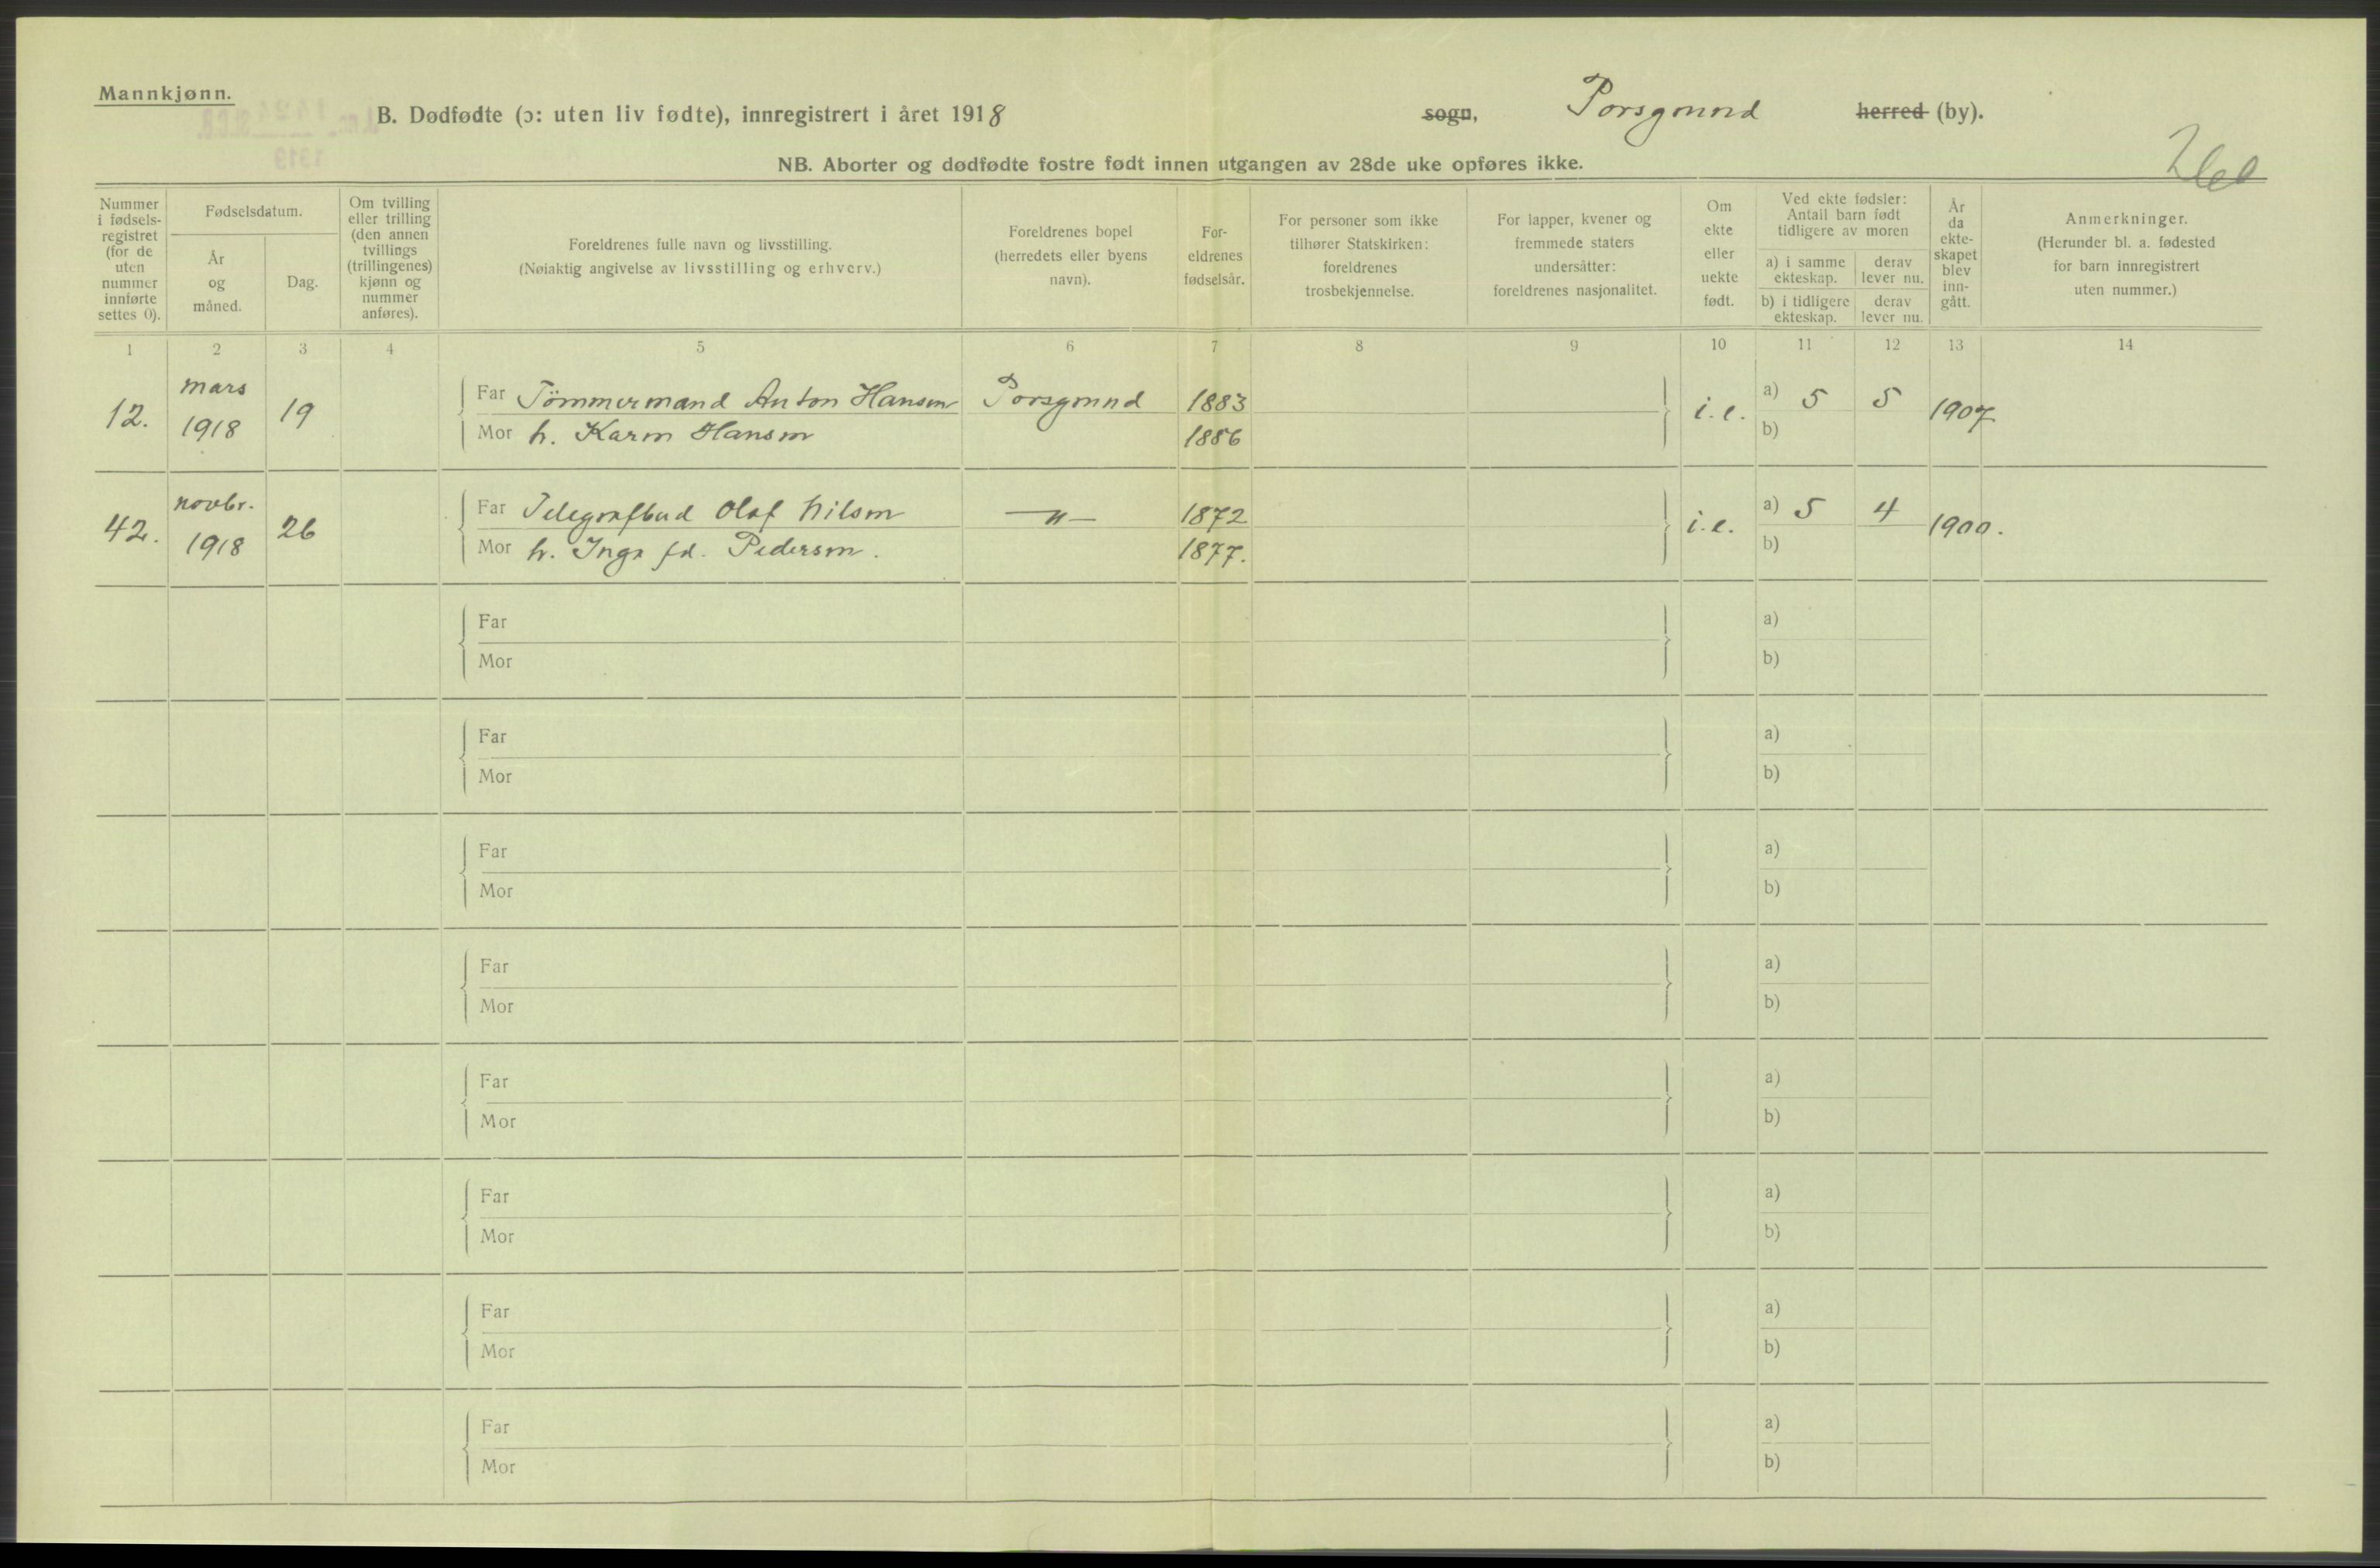 Mannkjønn.
B. Dødfødte (ɔ: uten liv fødte), innregistrert i året 1918 sogn, Porsgrund herred (by).
NB. Aborter og dødfødte fostre født innen utgangen av 28de uke opføres ikke.
Nummer i fødsels- registret (for de uten nummer innførte settes 0).
Fødselsdatum.
År og måned.
Dag.
Om tvilling eller trilling (den annen tvillings (trillingenes) kjønn og nummer anføres).
Foreldrenes fulle navn og livsstilling.
(Nøiaktig angivelse av livsstilling og erhverv.)
Foreldrenes bopel (herredets eller byens navn).
For- eldrenes fødselsår.
For personer som ikke tilhører Statskirken: foreldrenes trosbekjennelse.
For lapper, kvener og fremmede staters undersåtter: foreldrenes nasjonalitet.
Om ekte eller uekte født.
Ved ekte fødsler: Antall barn født tidligere av moren
a) i samme ekteskap.
derav lever nu.
b) i tidligere ekteskap.
derav lever nu.
År da ekte- skapet blev inn- gått.
Anmerkninger.
(Herunder bl. a. fødested for barn innregistrert uten nummer.)
1 2 3 4 5 6 7 8 9 10 11 12 13 14
12. mars 1918 19 Far Tömmermand Anton Hansen Porsgrund 1883 i.e. a) 5 5 1907
Mor h. Karen Hansen 1886 b)
42. novbr. 1918 26 Far Telegrafbud Olaf Nilsen —"— 1872 i.e. a) 5 4 1900.
Mor h. Inga fd. Pedersen. 1877. b)
Far a)
Mor b)
Far a)
Mor b)
Far a)
Mor b)
Far a)
Mor b)
Far a)
Mor b)
Far a)
Mor b)
Far a)
Mor b)
Far a)
Mor b)